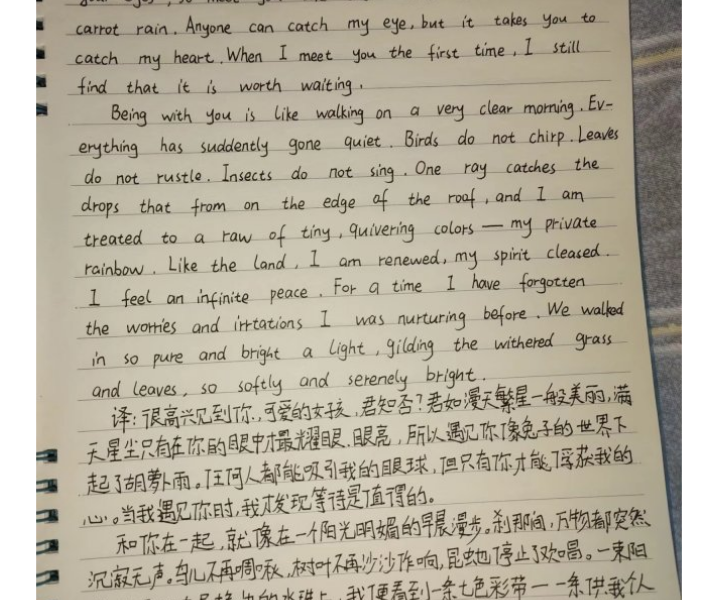 carrot rain. Anyone can catch my eye, but it takes you to
catch my heart. When I meet you the first time, I still
find that it is worth waiting.
Being with you is like walking on a very clear morning. Ev-
erything has suddenly gone quiet. Birds do not chirp. Leaves
do not rustle. Insects do not sing. One ray catches the
drops that from on the edge of the roaf, and I am
treated to a raw of tiny, quivering colors — my private
rainbow. Like the land, I am renewed, my spirit cleased.
I feel an infinite peace. For a time I have forgotten
the worries and irrtations I was nurturing before. We walked
in so pure and bright a light, gilding the withered grass
and leaves, so softly and serenely bright.
译：很高兴见到你，可爱的女孩，君知否？君如漫天繁星一般美丽，满
天星尘只有在你的眼中才最耀眼、眼亮，所以遇见你像兔子的世界下
起了胡萝卜雨。任何人都能吸引我的眼球，但只有你才能俘获我的
心。当我遇见你时，我才发现等待是值得的。
和你在一起，就像在一个阳光明媚的早晨漫步。刹那间，万物都突然
沉寂无声。鸟儿不再啁啾，树叶不再沙沙作响，昆虫也停止了欢唱。一束阳
的水珠上，我便看到一条七色彩带——条供我个人